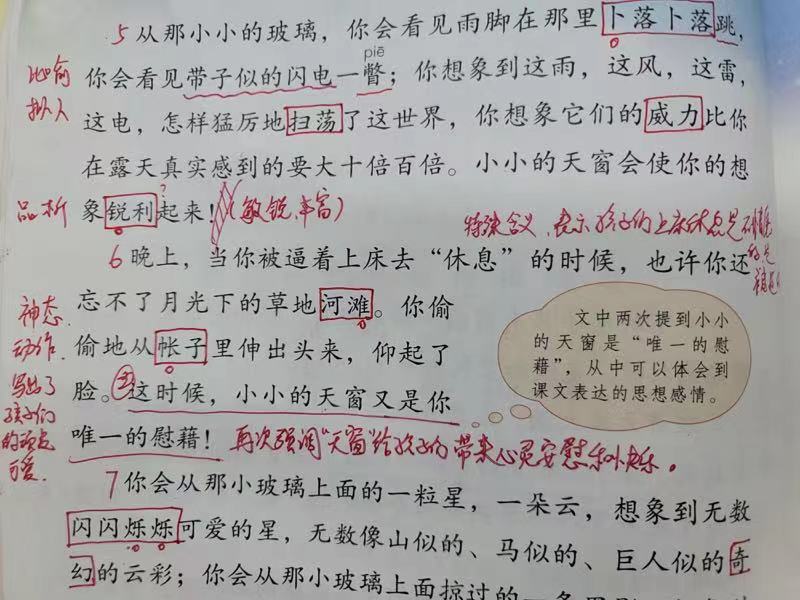 5 从那小小的玻璃，你会看见雨脚在那里卜落卜落跳，
piē
你会看见带子似的闪电一瞥；你想象到这雨，这风，这雷，
比喻
拟人
这电，怎样猛厉地扫荡了这世界，你想象它们的威力比你
在露天真实感到的要大十倍百倍。小小的天窗会使你的想
品析
象锐利起来！（敏锐，丰富）
?
特殊含义，表示孩子们上床休息是不情愿
的，是
6 晚上，当你被逼着上床去“休息”的时候，也许你还
忘不了月光下的草地河滩。你偷
神态
动作
偷地从帐子里伸出头来，仰起了
写出了
孩子们
的顽皮
可爱．
脸。这时候，小小的天窗又是你
唯一的慰藉！
再次强调“天窗”给孩子们带来心灵安慰和快乐。
文中两次提到小小
的天窗是“唯一的慰
藉”，从中可以体会到
课文表达的思想感情。
7 你会从那小玻璃上面的一粒星，一朵云，想象到无数
闪闪烁烁可爱的星，无数像山似的、马似的、巨人似的奇
幻的云彩；你会从那小玻璃上面掠过的一条黑影